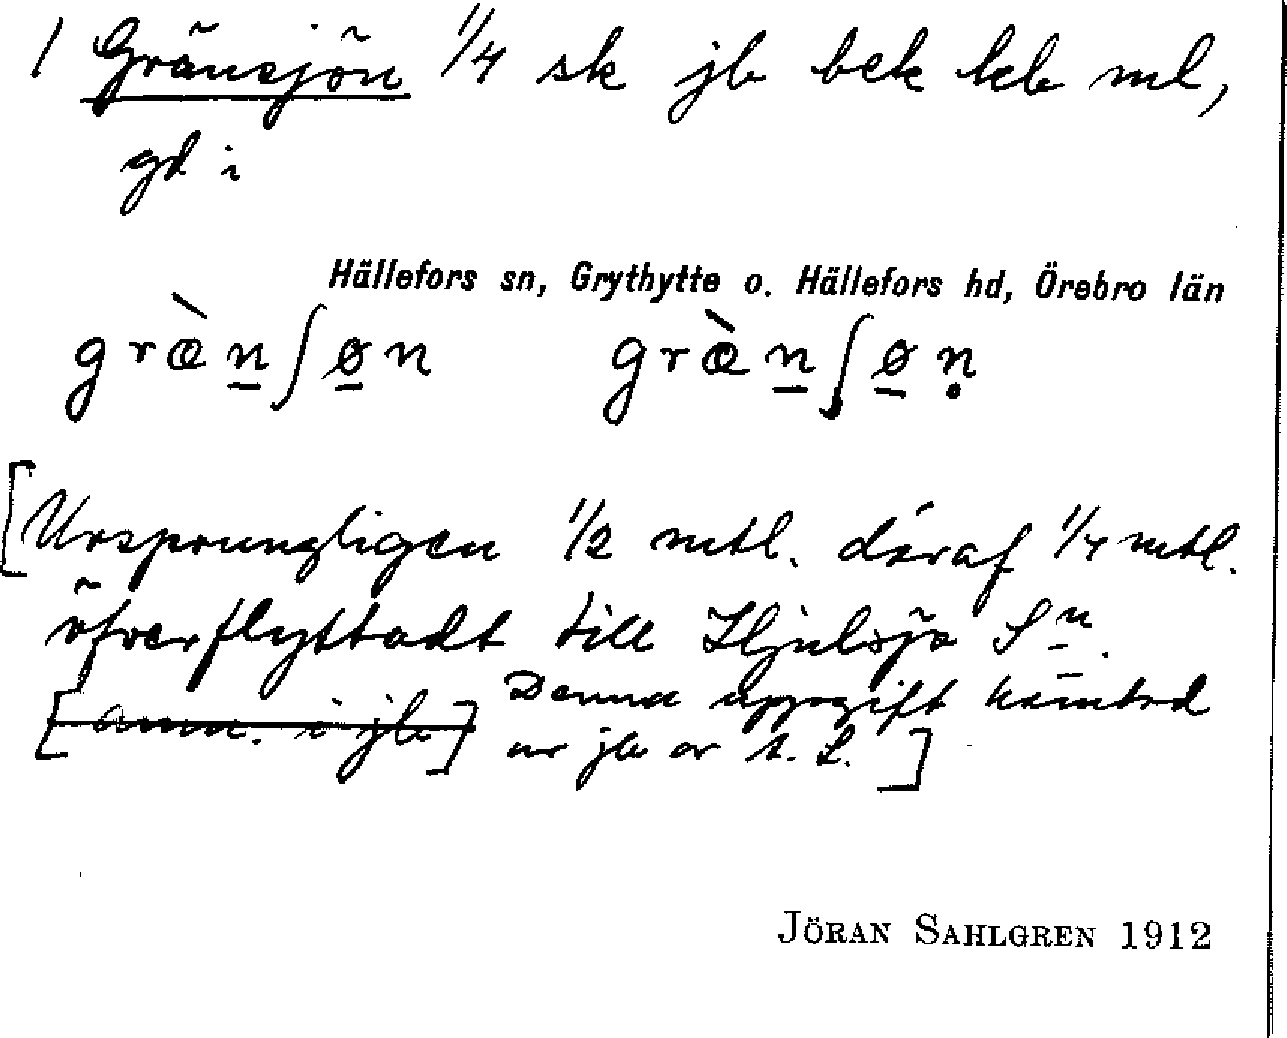 1 Gränsjön 1/4 sk jb bek kb ml,
gd i
Hällefors sn, Grythytte o. Hällefors hd, Örebro län
græ̀n̲ʃø̲n græ̀n̲ʃø̲ṇ
[Ursprungligen 1/2 mtl. däraf 1/4 mtl.
öfverflyttadt till Hjulsjö Sn.
[anm. i jb] Denna uppgift hämtad
ur jb av t. L.]
JÖRAN SAHLGREN 1912